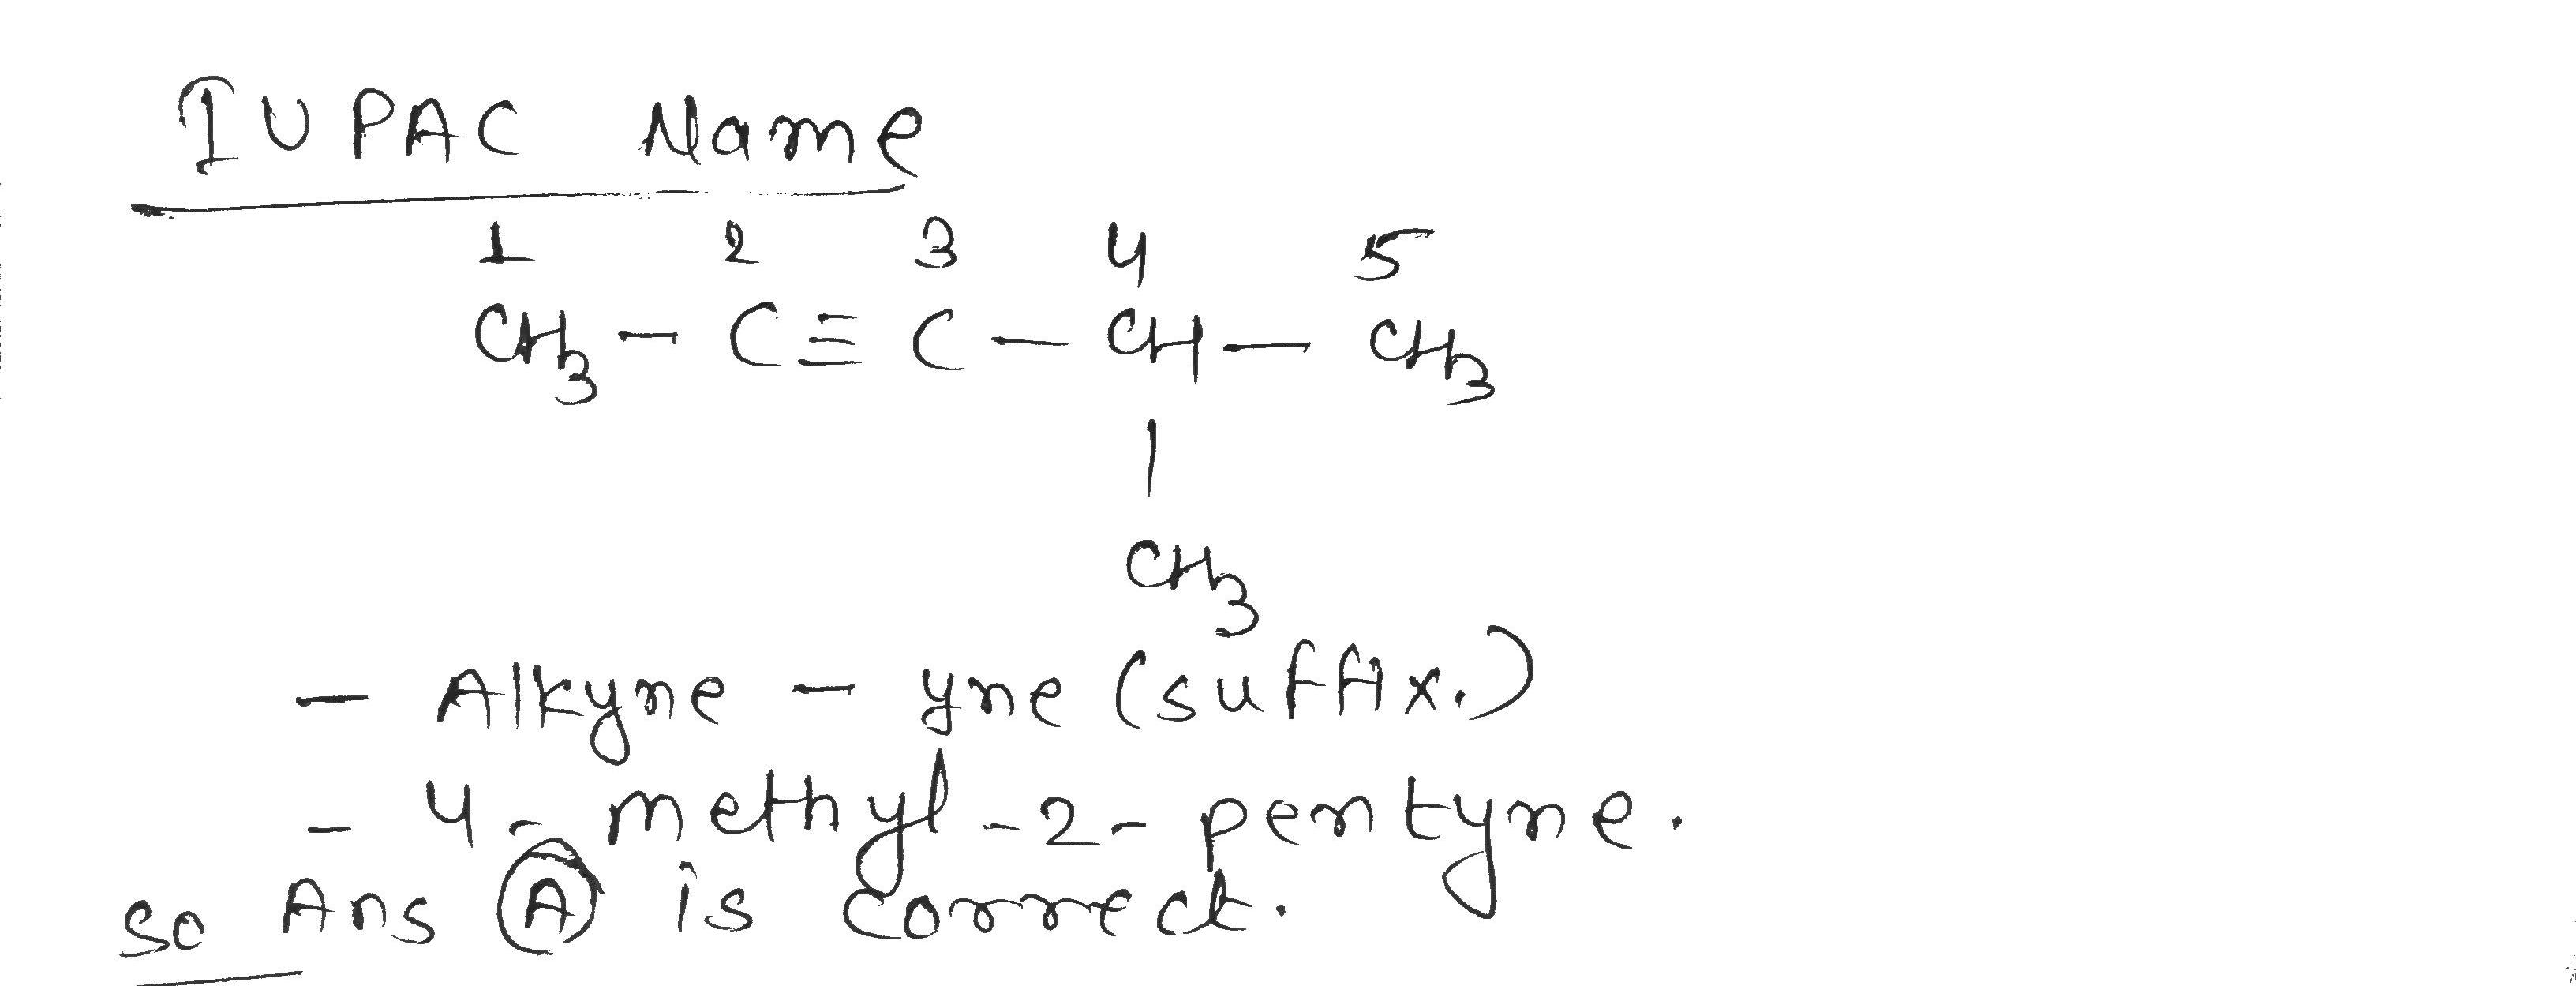 IUPAC Name
1 2 3 4 5
CH3 - C ≡ C - CH - CH3
|
CH3
- Alkyne - yne (suffix.)
- 4 - methyl - 2 - pentyne.
so Ans A is correct.